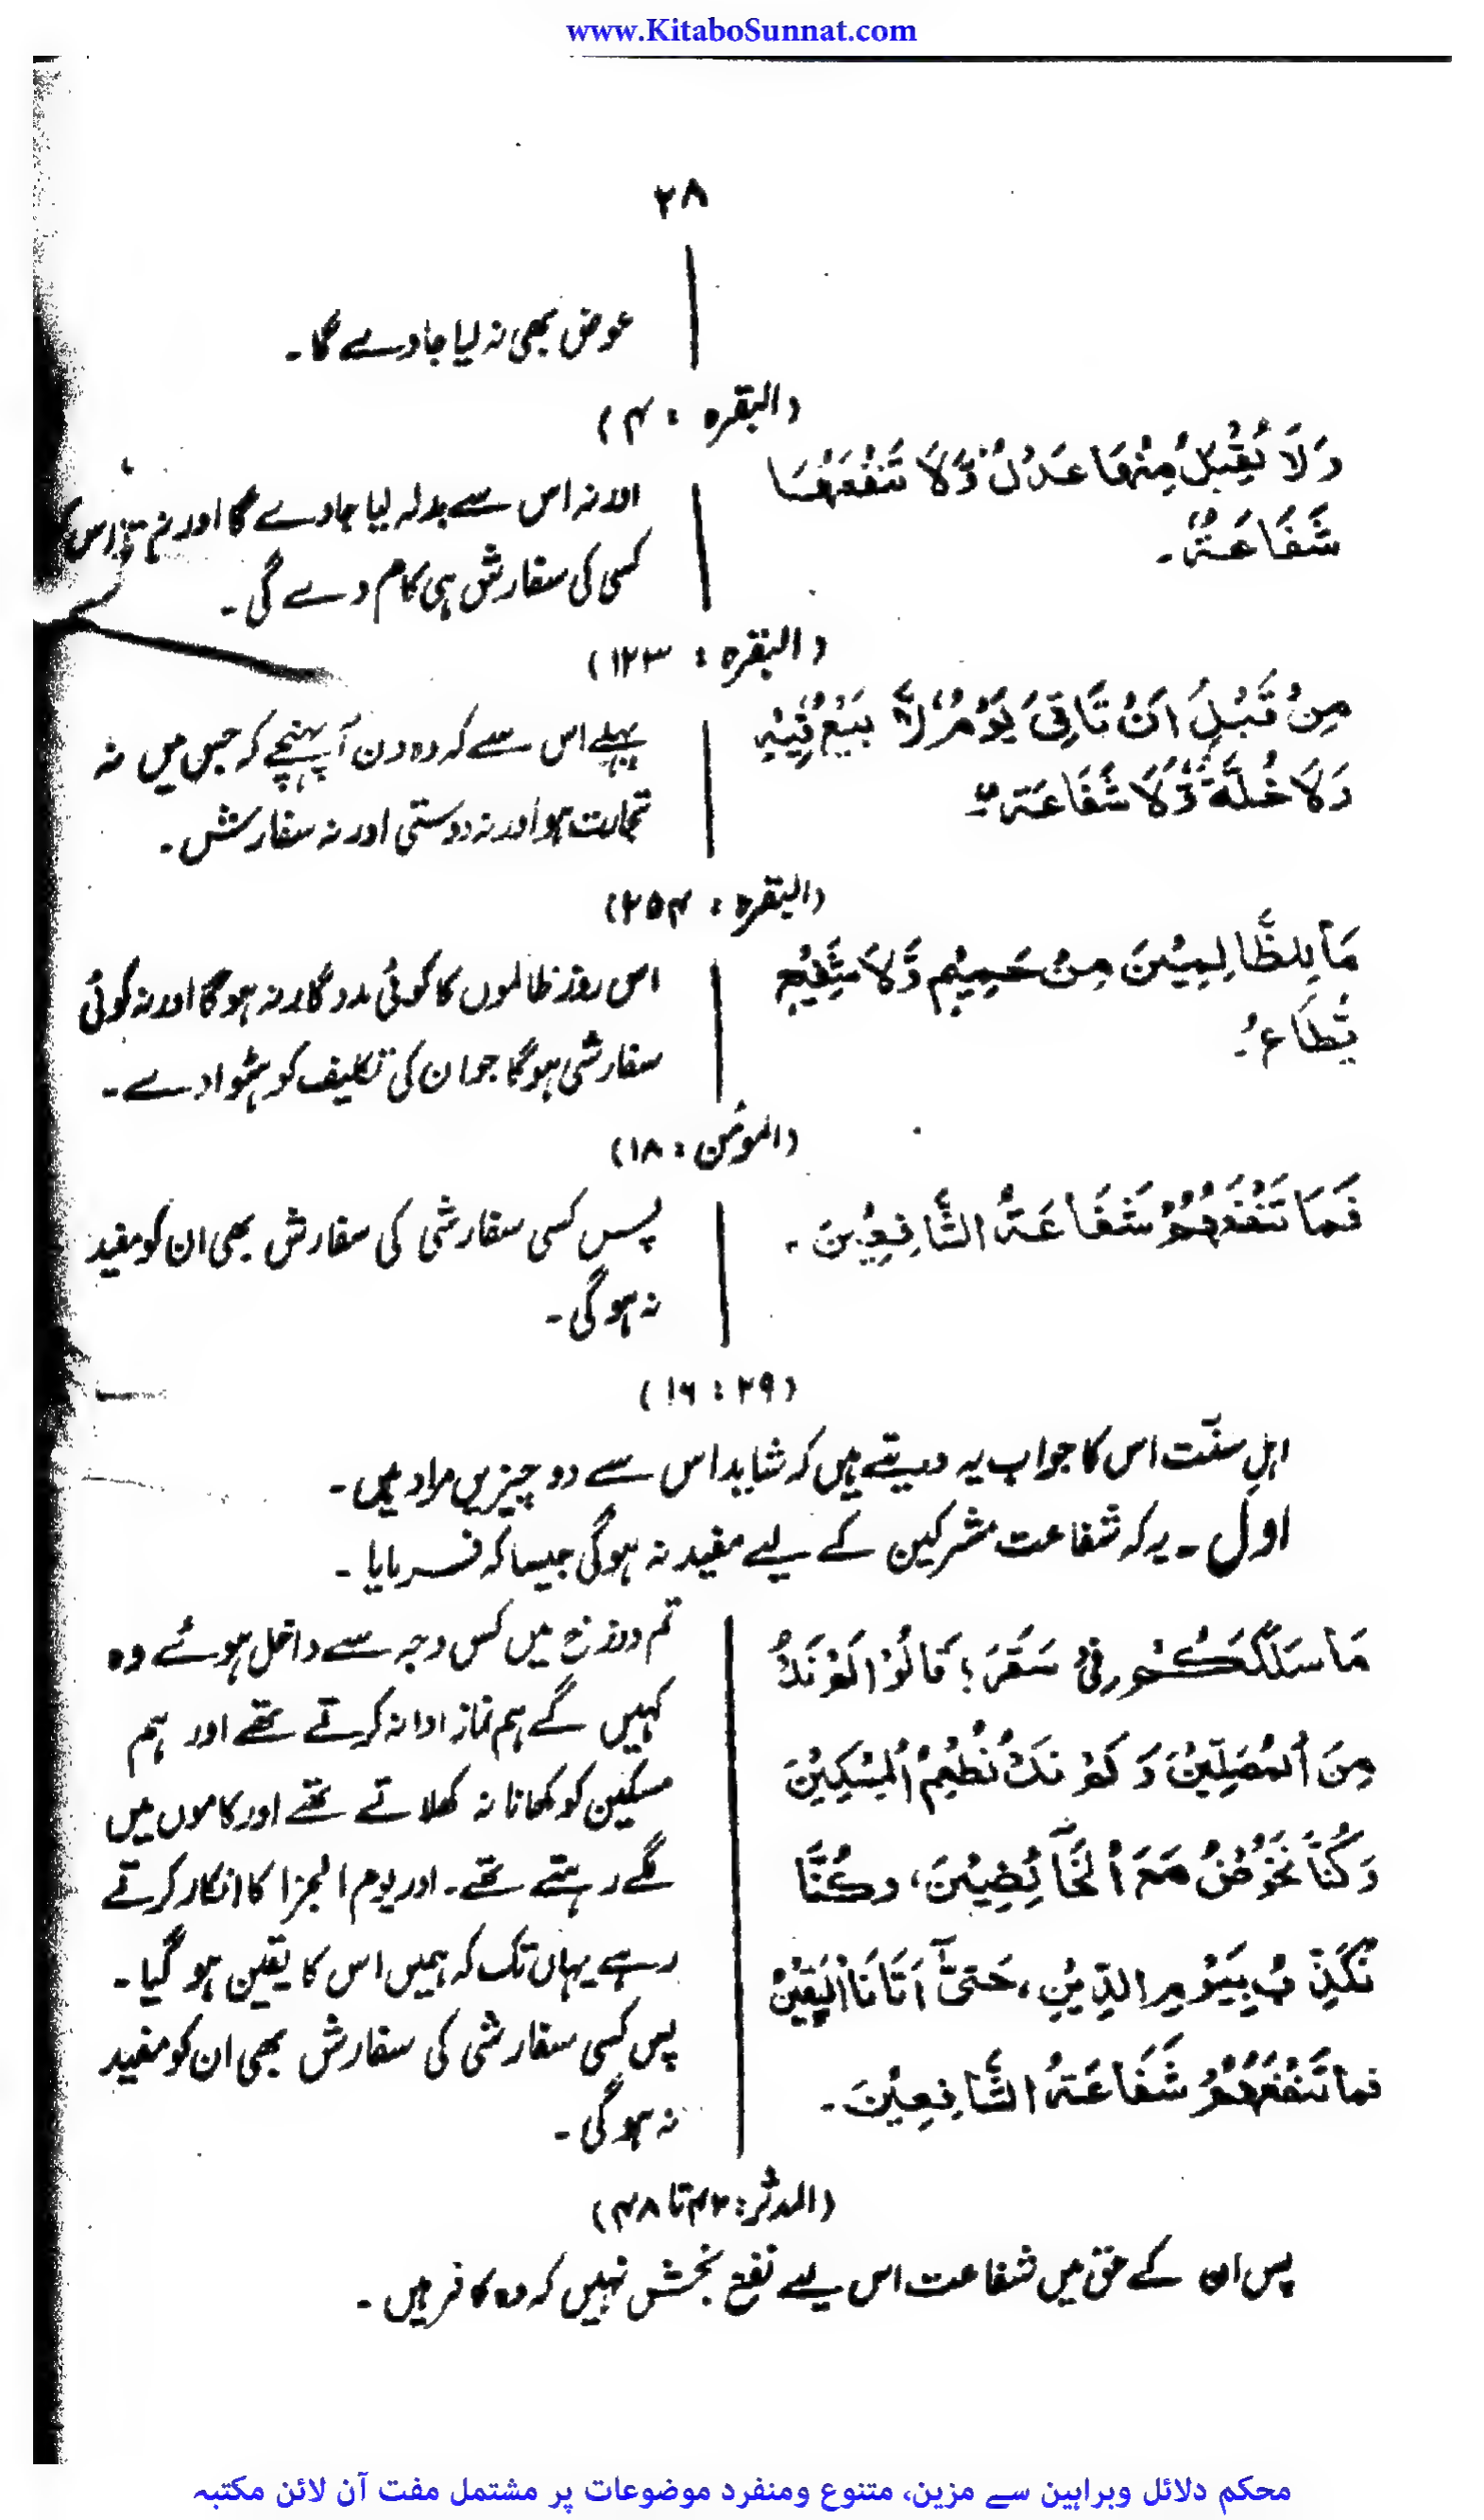 www.KitaboSunnat.com
۲۸
عوض بھی نہ لیا جاوے گا۔
(البقرہ : ۴)
وَلَا یُقْبَلُ مِنْهَا عَدْلٌ وَّلَا تَنْفَعُهَا
شَفَاعَةٌ۔
اور نہ اس سے بدلہ لیا جاوے گا اور نہ اس
کسی کی سفارش ہی کام دے گی۔
(البقرہ : ۱۲۳)
مِنْ قَبْلِ اَنْ یَّاْتِیَ یَوْمٌ لَّا بَیْعٌ فِیْهِ
وَلَا خُلَّةٌ وَّلَا شَفَاعَةٌ
پہلے اس سے کہ وہ دن آ پہنچے کہ جس میں نہ
تجارت ہو اور نہ دوستی اور نہ سفارش۔
(البقرہ : ۲۵۴)
مَا لِلظَّالِمِیْنَ مِنْ حَمِیْمٍ وَّلَا شَفِیْعٍ
یُّطَاعُ۔
اس روز ظالموں کا کوئی مددگار نہ ہوگا اور نہ کوئی
سفارشی ہوگا جو ان کی تکلیف کو ہٹوا دے۔
(المؤمن : ۱۸)
فَمَا تَنْفَعُهُمْ شَفَاعَةُ الشَّافِعِیْنَ۔
پس کسی سفارشی کی سفارش بھی ان کو مفید
نہ ہوگی۔
(۲۹ : ۱۶)
اہلِ سنّت اس کا جواب یہ دیتے ہیں کہ شاید اس سے دو چیزیں مراد ہیں۔
اول۔ یہ کہ شفاعت مشرکین کے لیے مفید نہ ہوگی جیسا کہ فرمایا۔
مَا سَلَكَكُمْ فِیْ سَقَرَ؛ قَالُوْا لَمْ نَكُ
مِنَ الْمُصَلِّیْنَ وَ لَمْ نَكُ نُطْعِمُ الْمِسْكِیْنَ
وَكُنَّا نَخُوْضُ مَعَ الْخَآئِضِیْنَ، وَكُنَّا
نُكَذِّبُ بِیَوْمِ الدِّیْنِ، حَتّٰیٓ اَتَانَا الْیَقِیْنُ
فما تَنْفَعُهُمْ شَفَاعَةُ الشَّافِعِیْنَ۔
تم دوزخ میں کس وجہ سے داخل ہوئے وہ
کہیں گے ہم نماز ادا نہ کرتے تھے اور ہم
مسکین کو کھانا نہ کھلاتے تھے اور کاموں میں
لگے رہتے تھے۔ اور یوم الجزا کا انکار کرتے
رہے یہاں تک کہ ہمیں اس کا یقین ہو گیا۔
پس کسی سفارشی کی سفارش بھی ان کو مفید
نہ ہوگی۔
(المدثر: ۴۲ تا ۴۸)
پس ان کے حق میں شفاعت اس لیے نفع بخش نہیں کہ وہ کافر ہیں۔
محکم دلائل وبراہین سے مزین، متنوع ومنفرد موضوعات پر مشتمل مفت آن لائن مکتبہ